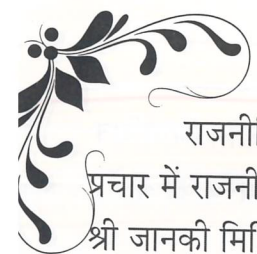 राजनी
प्रचार में राजनी
श्री जानकी मि